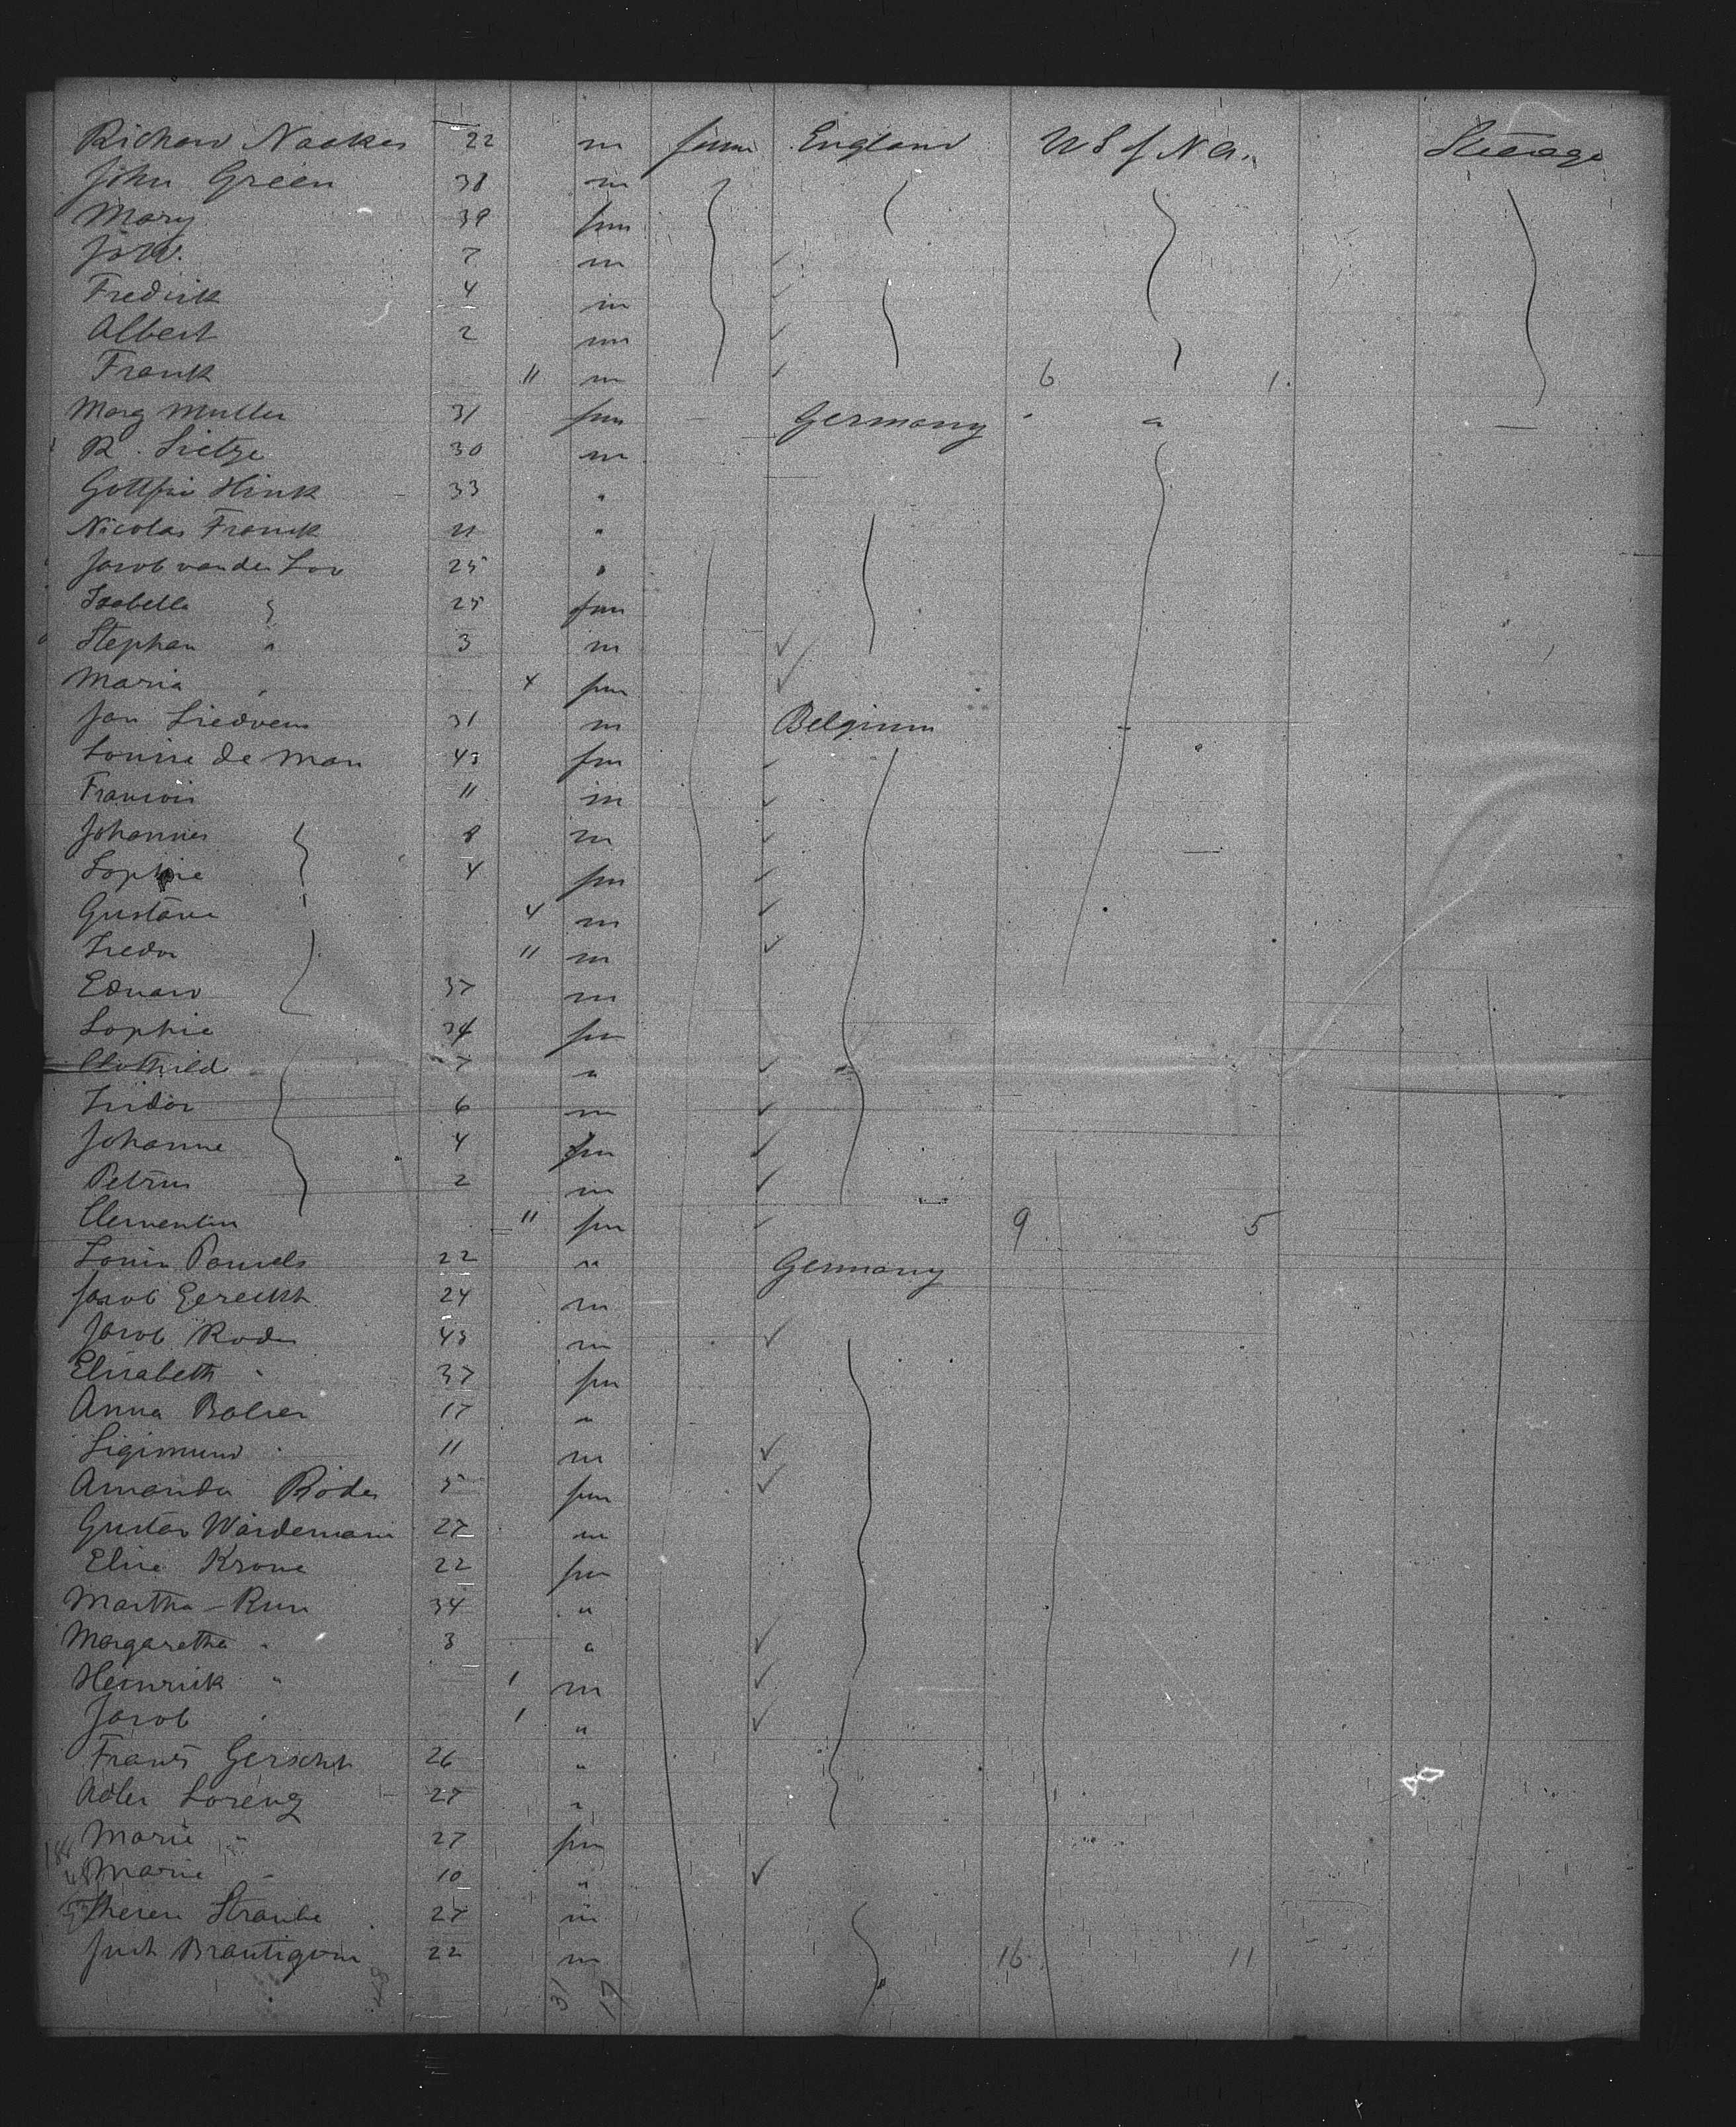 Richard Noakes 22 m farm England U S of N A. Steerage
John Green 38 m
Mary 39 fem
John 7 m
Fredrik 4 m
Albert 2 m
Frank 11 m 6 1
Marg Muller 31 fem Germany "
R. Lietze 30 m
Gottfri Hink 33 "
Nicolas Franck 21 "
Jacob van der Loo 25 "
Isabella 25 fem
Stephan " 3 m
Maria " 4 fem
Jan Liedvens 31 m Belgium
Louise de Man 43 fm
Francois 11 m
Johannes 8 m
Sophie 4 fm
Gustave 4 m
Isedor 11 m
Eduard 37 m
Sophie 34 fm
Clothilde 7 "
Isidor 6 m
Johanne 4 fm
Petrus 2 m
Clementin 11 fm 9 5
Louis Pauwels 22 " Germany
Jacob 24 m
Jacob Roder 43 m
Elisabeth " 37 fm
Anna 17 "
Sigismund " 11 m
Amanda Röder 5 fem
Gustav Wärdemann 27 m
Elise Krone 22 fm
Martha 34 "
Margaretha " 3 "
Heinrich " 1 m
Jacob " 1 "
Frans 26 "
Adler Lorenz 27 "
Marie " 27 fm
Marie " 10 "
Therese Straube 27 m
Just Brautigam 22 m 16 11
31 17